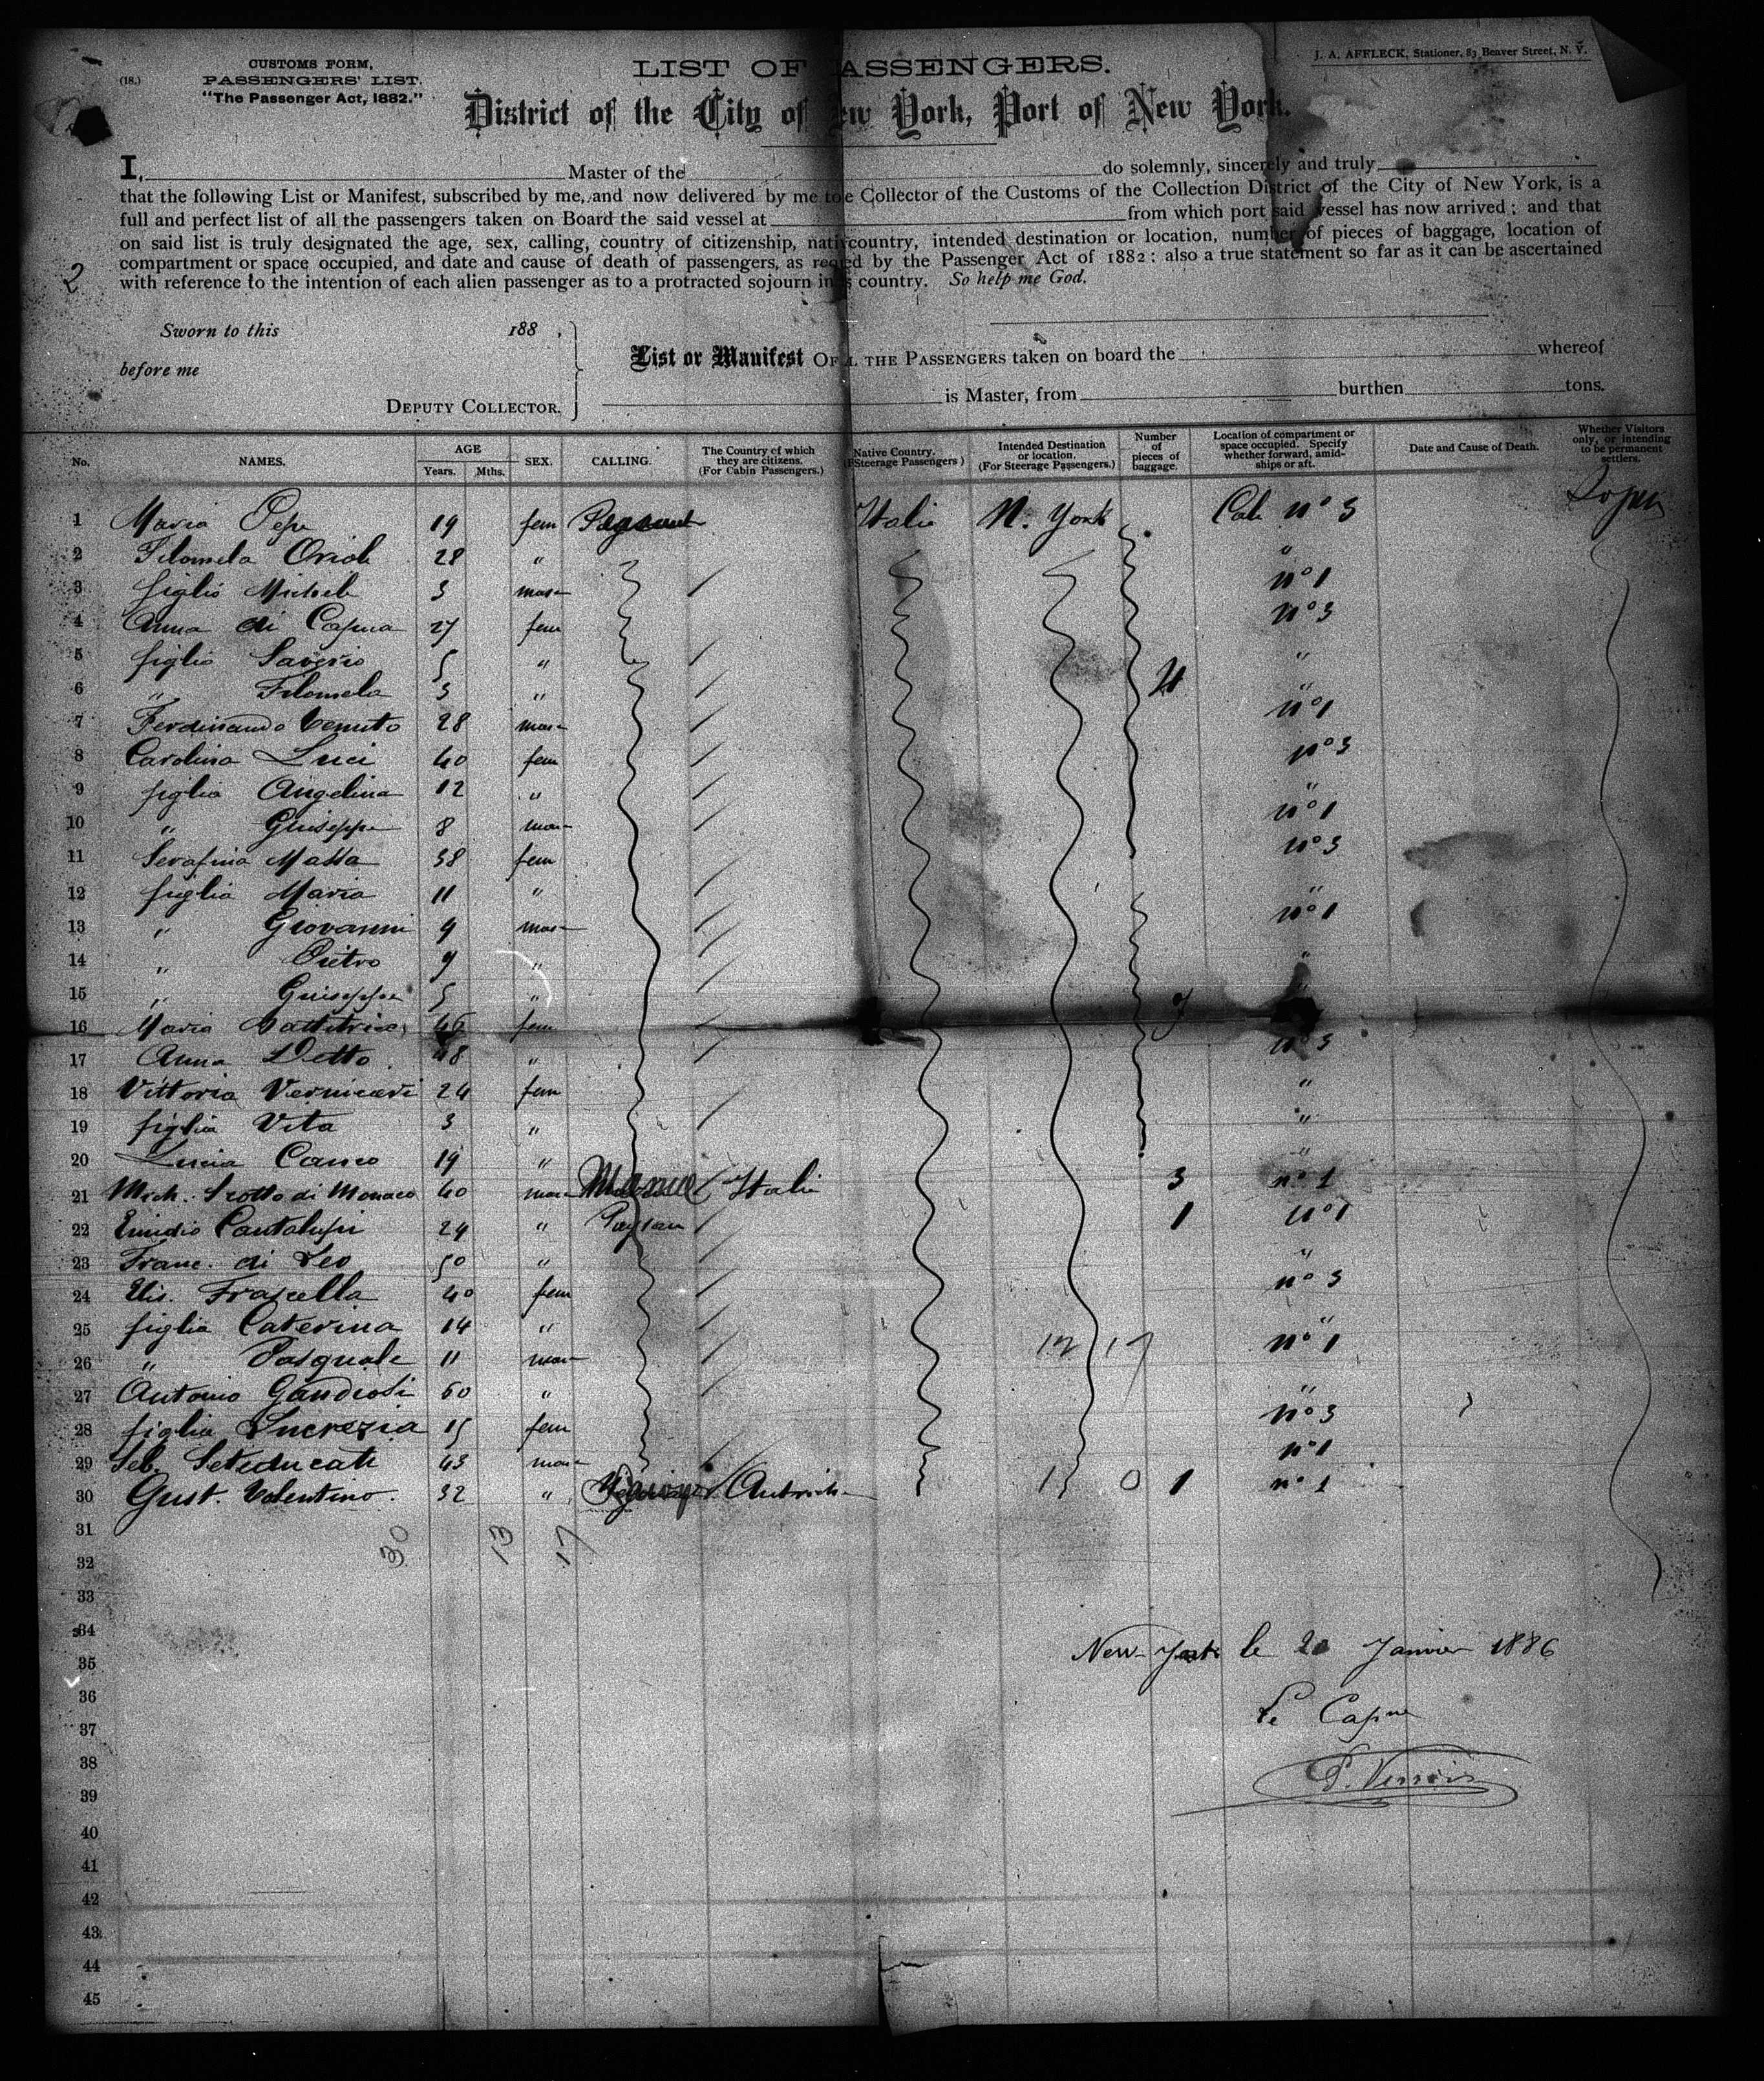 (18.)
CUSTOMS FORM,
PASSENGERS' LIST.
"The Passenger Act, 1882."
LIST OF PASSENGERS.
J. A. AFFLECK, Stationer, 83 Beaver Street, N. Y.
District of the City of New York, Port of New York.
I, Master of the do solemnly, sincerely and truly
that the following List or Manifest, subscribed by me, and now delivered by me to e Collector of the Customs of the Collection District of the City of New York, is a
full and perfect list of all the passengers taken on Board the said vessel at from which port said vessel has now arrived; and that
on said list is truly designated the age, sex, calling, country of citizenship, nati country, intended destination or location, number of pieces of baggage, location of
compartment or space occupied, and date and cause of death of passengers, as req ed by the Passenger Act of 1882: also a true statement so far as it can be ascertained
with reference to the intention of each alien passenger as to a protracted sojourn in s country. So help me God.
2
Sworn to this 188 ,
before me
DEPUTY COLLECTOR.
List or Manifest OF THE PASSENGERS taken on board the whereof
is Master, from burthen tons.
No. NAMES. AGE Years. Mths. SEX. CALLING. The Country of which they are citizens. (For Cabin Passengers.) Native Country. (Steerage Passengers) Intended Destination or location. (For Steerage Passengers.) Number of pieces of baggage. Location of compartment or space occupied. Specify whether forward, amidships or aft. Date and Cause of Death. Whether Visitors only, or intending to be permanent settlers.
1 Maria Pepe 19 fem Italie N. York Cab n° 3
2 Filomela Oriol 28 " "
3 figlio Michele 3 mas n° 1
4 Anna di Capua 27 fem n° 3
5 figlio Saverio 5 " "
6 " Filomela 3 " "
7 Ferdinando Venuto 28 mas n° 1
8 Carolina Luci 40 fem n° 3
9 figlia Angelina 12 " "
10 " Guiseppe 8 mas n° 1
11 Serafina Massa 38 fem n° 3
12 figlia Maria 11 " "
13 " Giovanni 9 mas n° 1
14 " Pietro 9 " "
15 " Guiseppe 5 " "
16 Maria 46 fem
17 Anna Detto 48 " n° 3
18 Vittoria Vernicari 24 fem "
19 figlia Vita 3 " "
20 Lucia Caneo 19 " "
21 Mich. Scotto di Monaco 40 mas Italie 3 n° 1
22 Emidio Cantalupi 24 " Paysan 1 n° 1
23 Franc. di Leo 50 " "
24 Elis. Frascella 40 fem n° 3
25 figlia Caterina 14 " "
26 " Pasquale 11 mas 12 17 n° 1
27 Antonio Gandiosi 60 " "
28 figlia Lucrezia 15 fem n° 3
29 Seb. Seteducati 43 mas n° 1
30 Gust. Valentino. 32 " Autrich 1 0 1 n° 1
31
30 13 17
32
33
34
New-York le 20 Janvier 1886
35
36
Le Capne
37
38
P. Verrois
39
40
41
42
43
44
45